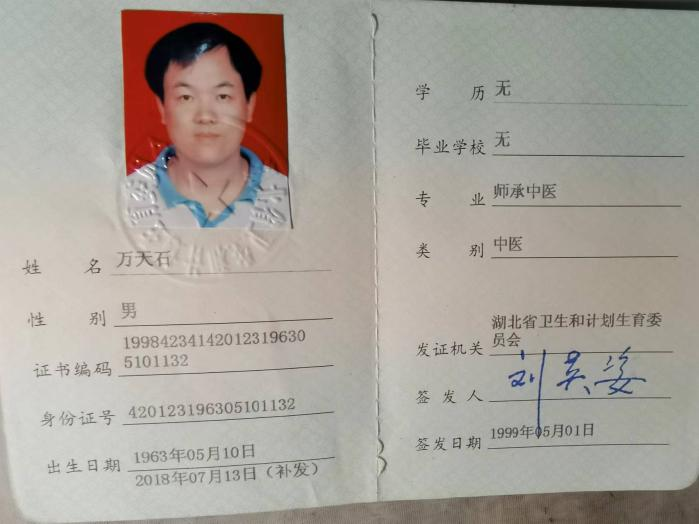 姓 名 万天石
性 别 男
证书编码 19984234142012319630
5101132
身份证号 420123196305101132
出生日期 1963年05月10日
2018年07月13日（补发）
学 历 无
毕业学校 无
专 业 师承中医
类 别 中医
发证机关 湖北省卫生和计划生育委
员会
签发人
签发日期 1999年05月01日